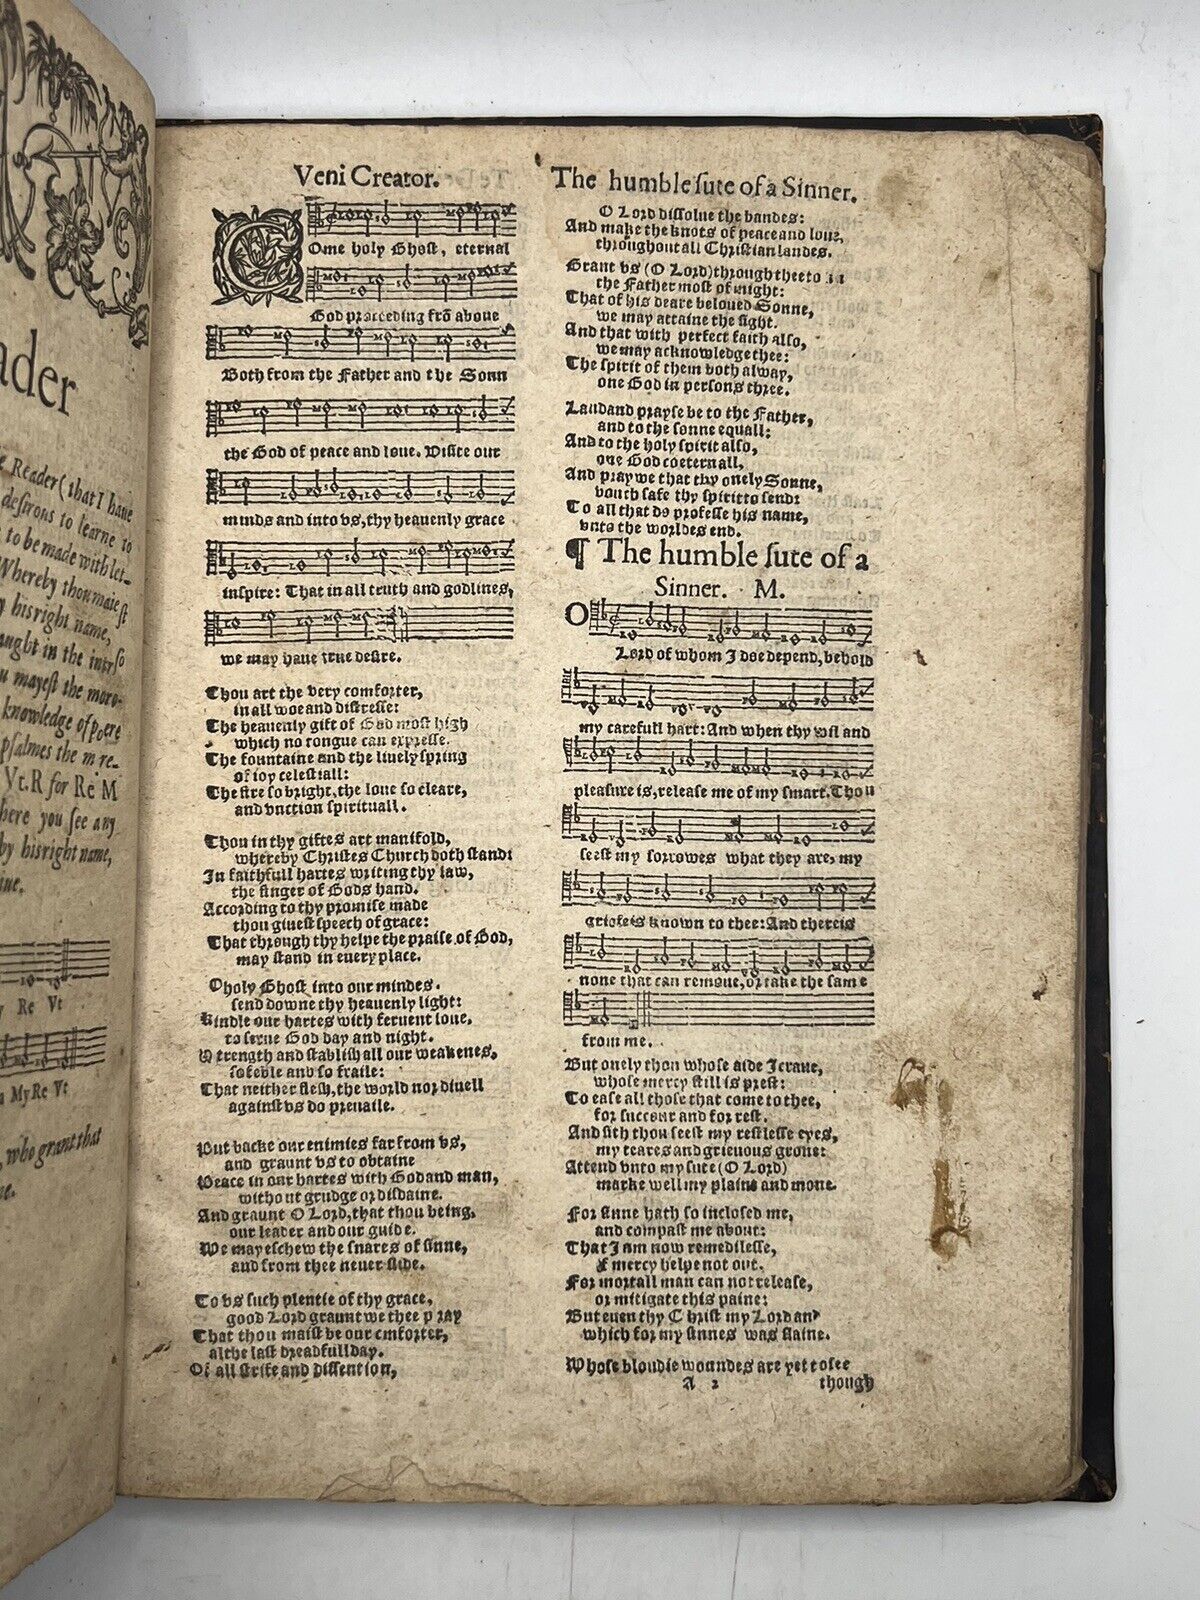 ader
e Reader (that I haue
desirous to learne to
to be made with let-
Whereby thou maiest
y his right name,
aught in the intro
u mayest the more
knowledge of
psalmes the more
Vt. R for Re M
here you see any
by his right name,
ine.
y Re Vt
a My Re Vt
, who grant that
ne.
Veni Creator.
Come holy Ghost, eternal
God proceeding frõ aboue
Both from the Father and the Sonn
the God of peace and loue. Visite our
minds and into vs, thy heauenly grace
inspire: That in all truth and godlines,
we may haue true desire.
Thou art the very comforter,
in all woe and distresse:
The heauenly gift of God most high
which no tongue can expresse.
The fountaine and the liuely spring
of ioy celestiall:
The fire so bright, the loue so cleare,
and vnction spirituall.
Thou in thy giftes art manifold,
whereby Christes Church doth stand:
In faithfull hartes writing thy law,
the finger of Gods hand.
According to thy promise made
thou giuest speech of grace:
That through thy helpe the praise of God,
may stand in euery place.
O holy Ghost, into our mindes.
send downe thy heauenly light:
Kindle our hartes with feruent loue,
to serue God day and night.
Strength and stablish all our weakenes,
so feble and so fraile:
That neither flesh, the world nor diuell
against vs do preuaile.
Put backe our enimies far from vs,
and graunt vs to obtaine
Peace in our hartes with God and man,
without grudge or disdaine.
And graunt O Lord, that thou being,
our leader and our guide.
We may eschew the snares of sinne,
and from thee neuer slide.
To vs such plentie of thy grace,
good Lord graunt we thee pray
That thou maist be our cmforter,
al the last dreadfull day.
Of all strife and dissention,
The humble sute of a Sinner.
O Lord dissolue the bandes:
And make the knots of peace and loue,
throughout all Christian landes.
Grant vs (O Lord) through thee to
the Father most of might:
That of his deare beloued Sonne,
we may attaine the sight.
And that with perfect faith also,
we may acknowledge thee:
The spirit of them both alway,
one God in persons three.
Laud and prayse be to the Father,
and to the sonne equall:
And to the holy spirit also,
one God coeternall,
And pray we that thy onely Sonne,
vouch safe thy spirit to send:
To all that do professe his name,
vnto the worldes end.
¶ The humble sute of a
Sinner. M.
O Lord of whom I doe depend, behold
my carefull hart: And when thy wil and
pleasure is, release me of my smart. Thou
seest my sorrowes what they are, my
griefe is known to thee: And there is
none that can remoue, or take the same
from me.
But onely thou whose aide I craue,
whose mercy still is prest:
To ease all those that come to thee,
for succour and for rest.
And sith thou seest my restlesse eyes,
my teares and grieuous grone:
Attend vnto my sute (O Lord)
marke well my plaint and mone.
For sinne hath so inclosed me,
and compast me about:
That I am now remedilesse,
if mercy helpe not out.
For mortall man can not release,
or mitigate this paine:
But euen thy Christ my Lord and
which for my sinnes was slaine.
Whose bloudie woundes are yet to see
A 2 though